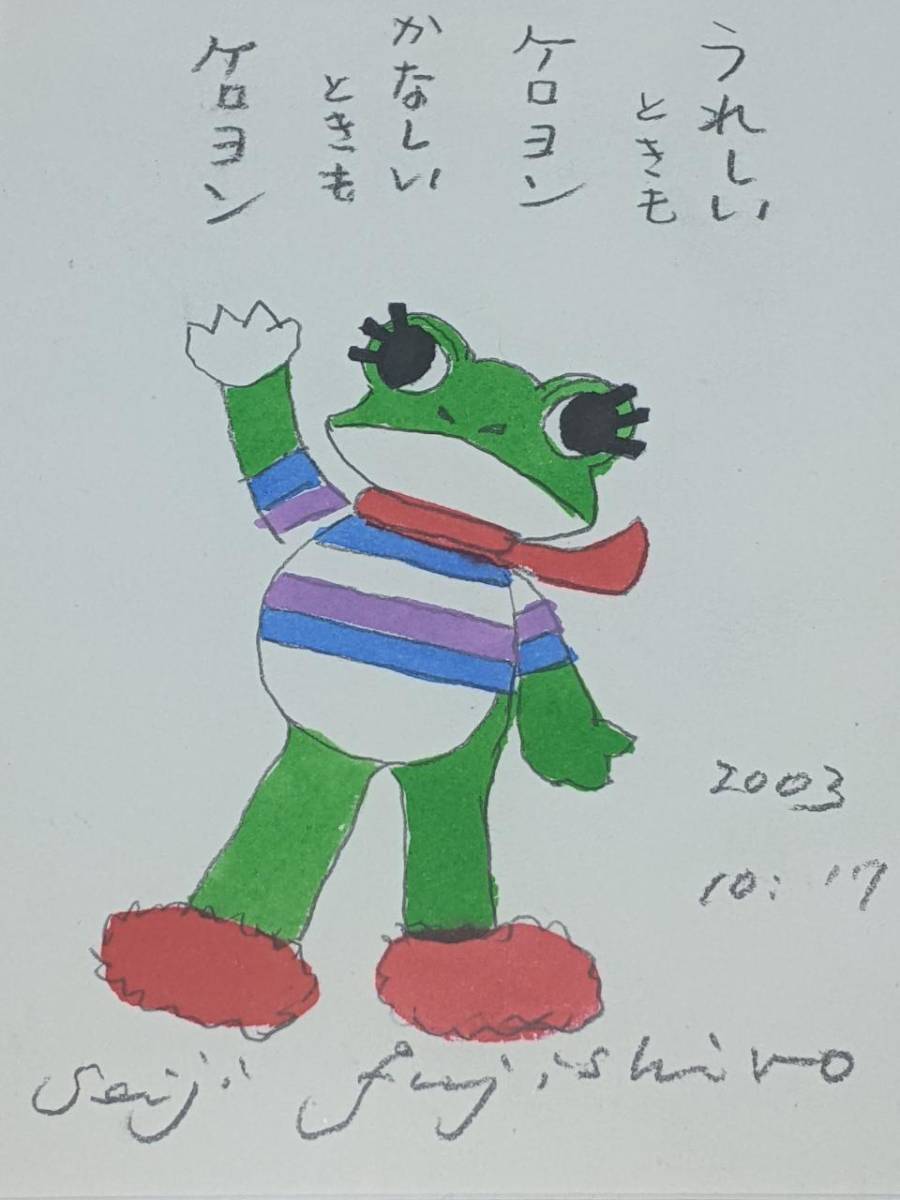 うれしい
ときも
ケロヨン
かなしい
ときも
ケロヨン
2003
10: 17
Seiji fujishiro